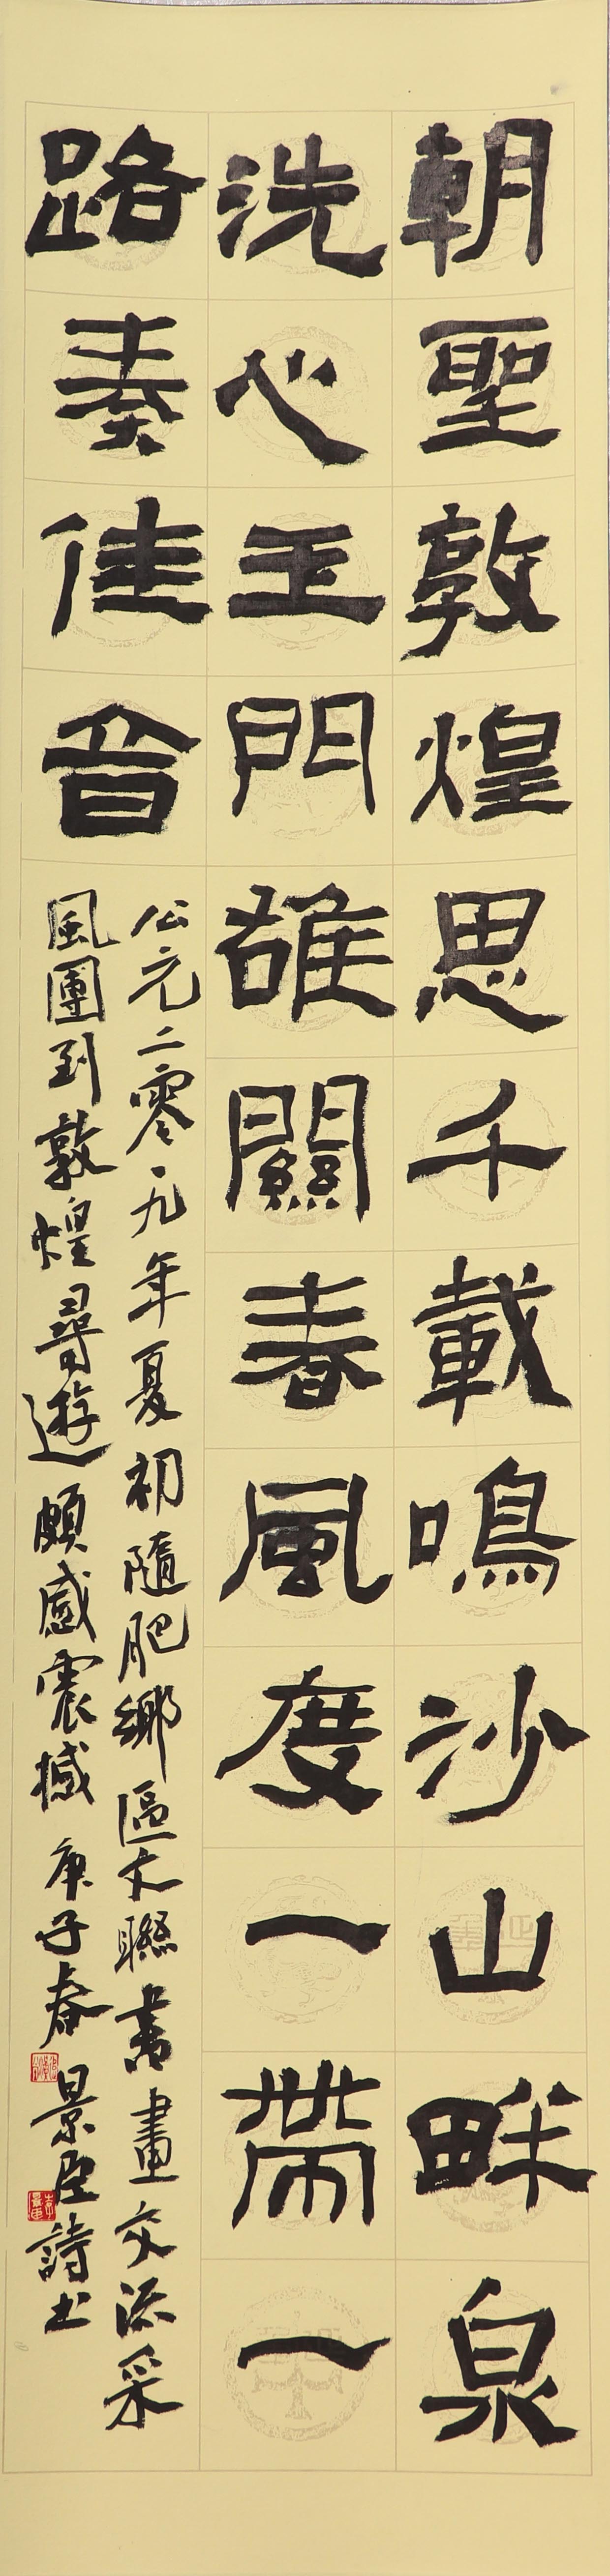 朝聖敦煌思千載鳴沙山畔泉
洗心玉門雄關春風度一帶一
路奏佳音
公元二零一九年夏初隨肥鄉區文聯書畫交流采
風團到敦煌尋遊頗感震撼庚子春景臣詩書